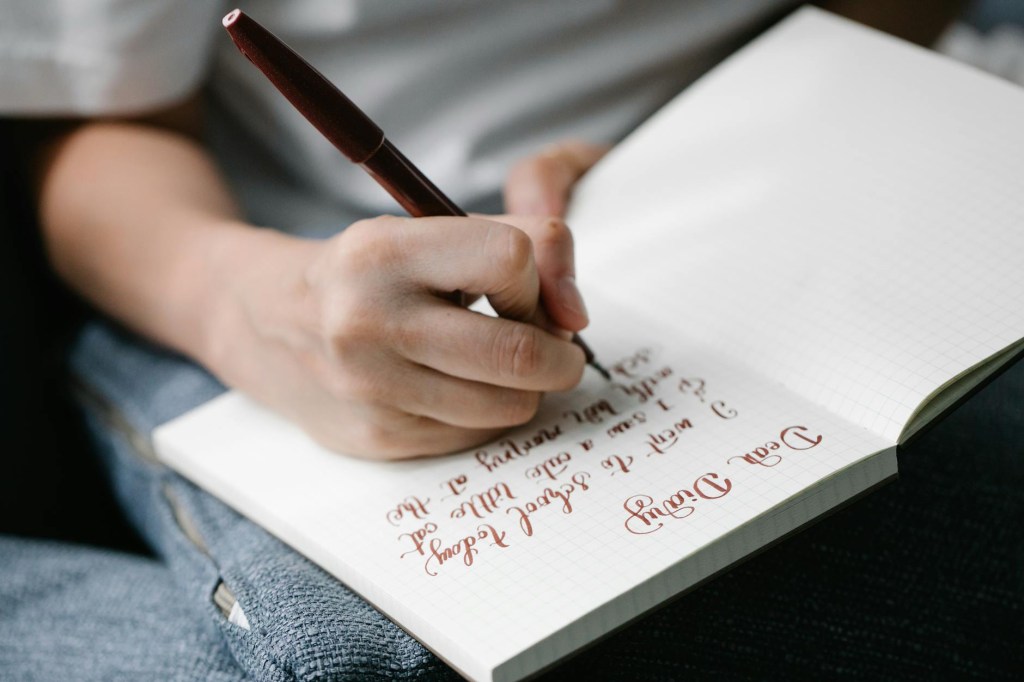 Dear Diary
I went to school today
& I saw a cute little cat
with mommy at the
sch